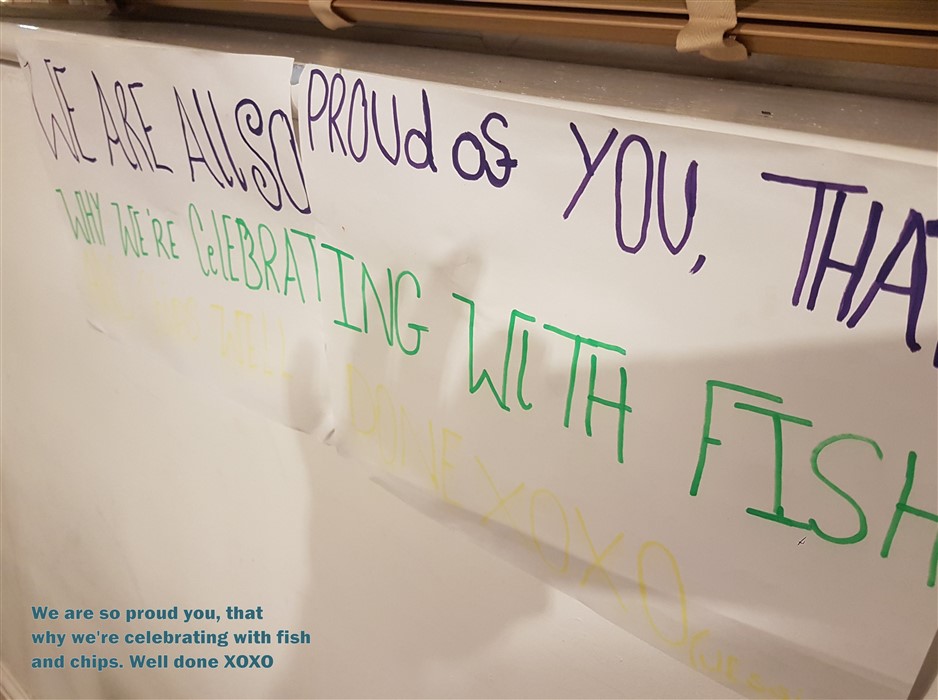 WE ARE All SO PROUd of YOU, THAT
WHY WE'RE CelEBRATING WITH FISH
WELL DONE XOXO
We are so proud you, that
why we're celebrating with fish
and chips. Well done XOXO